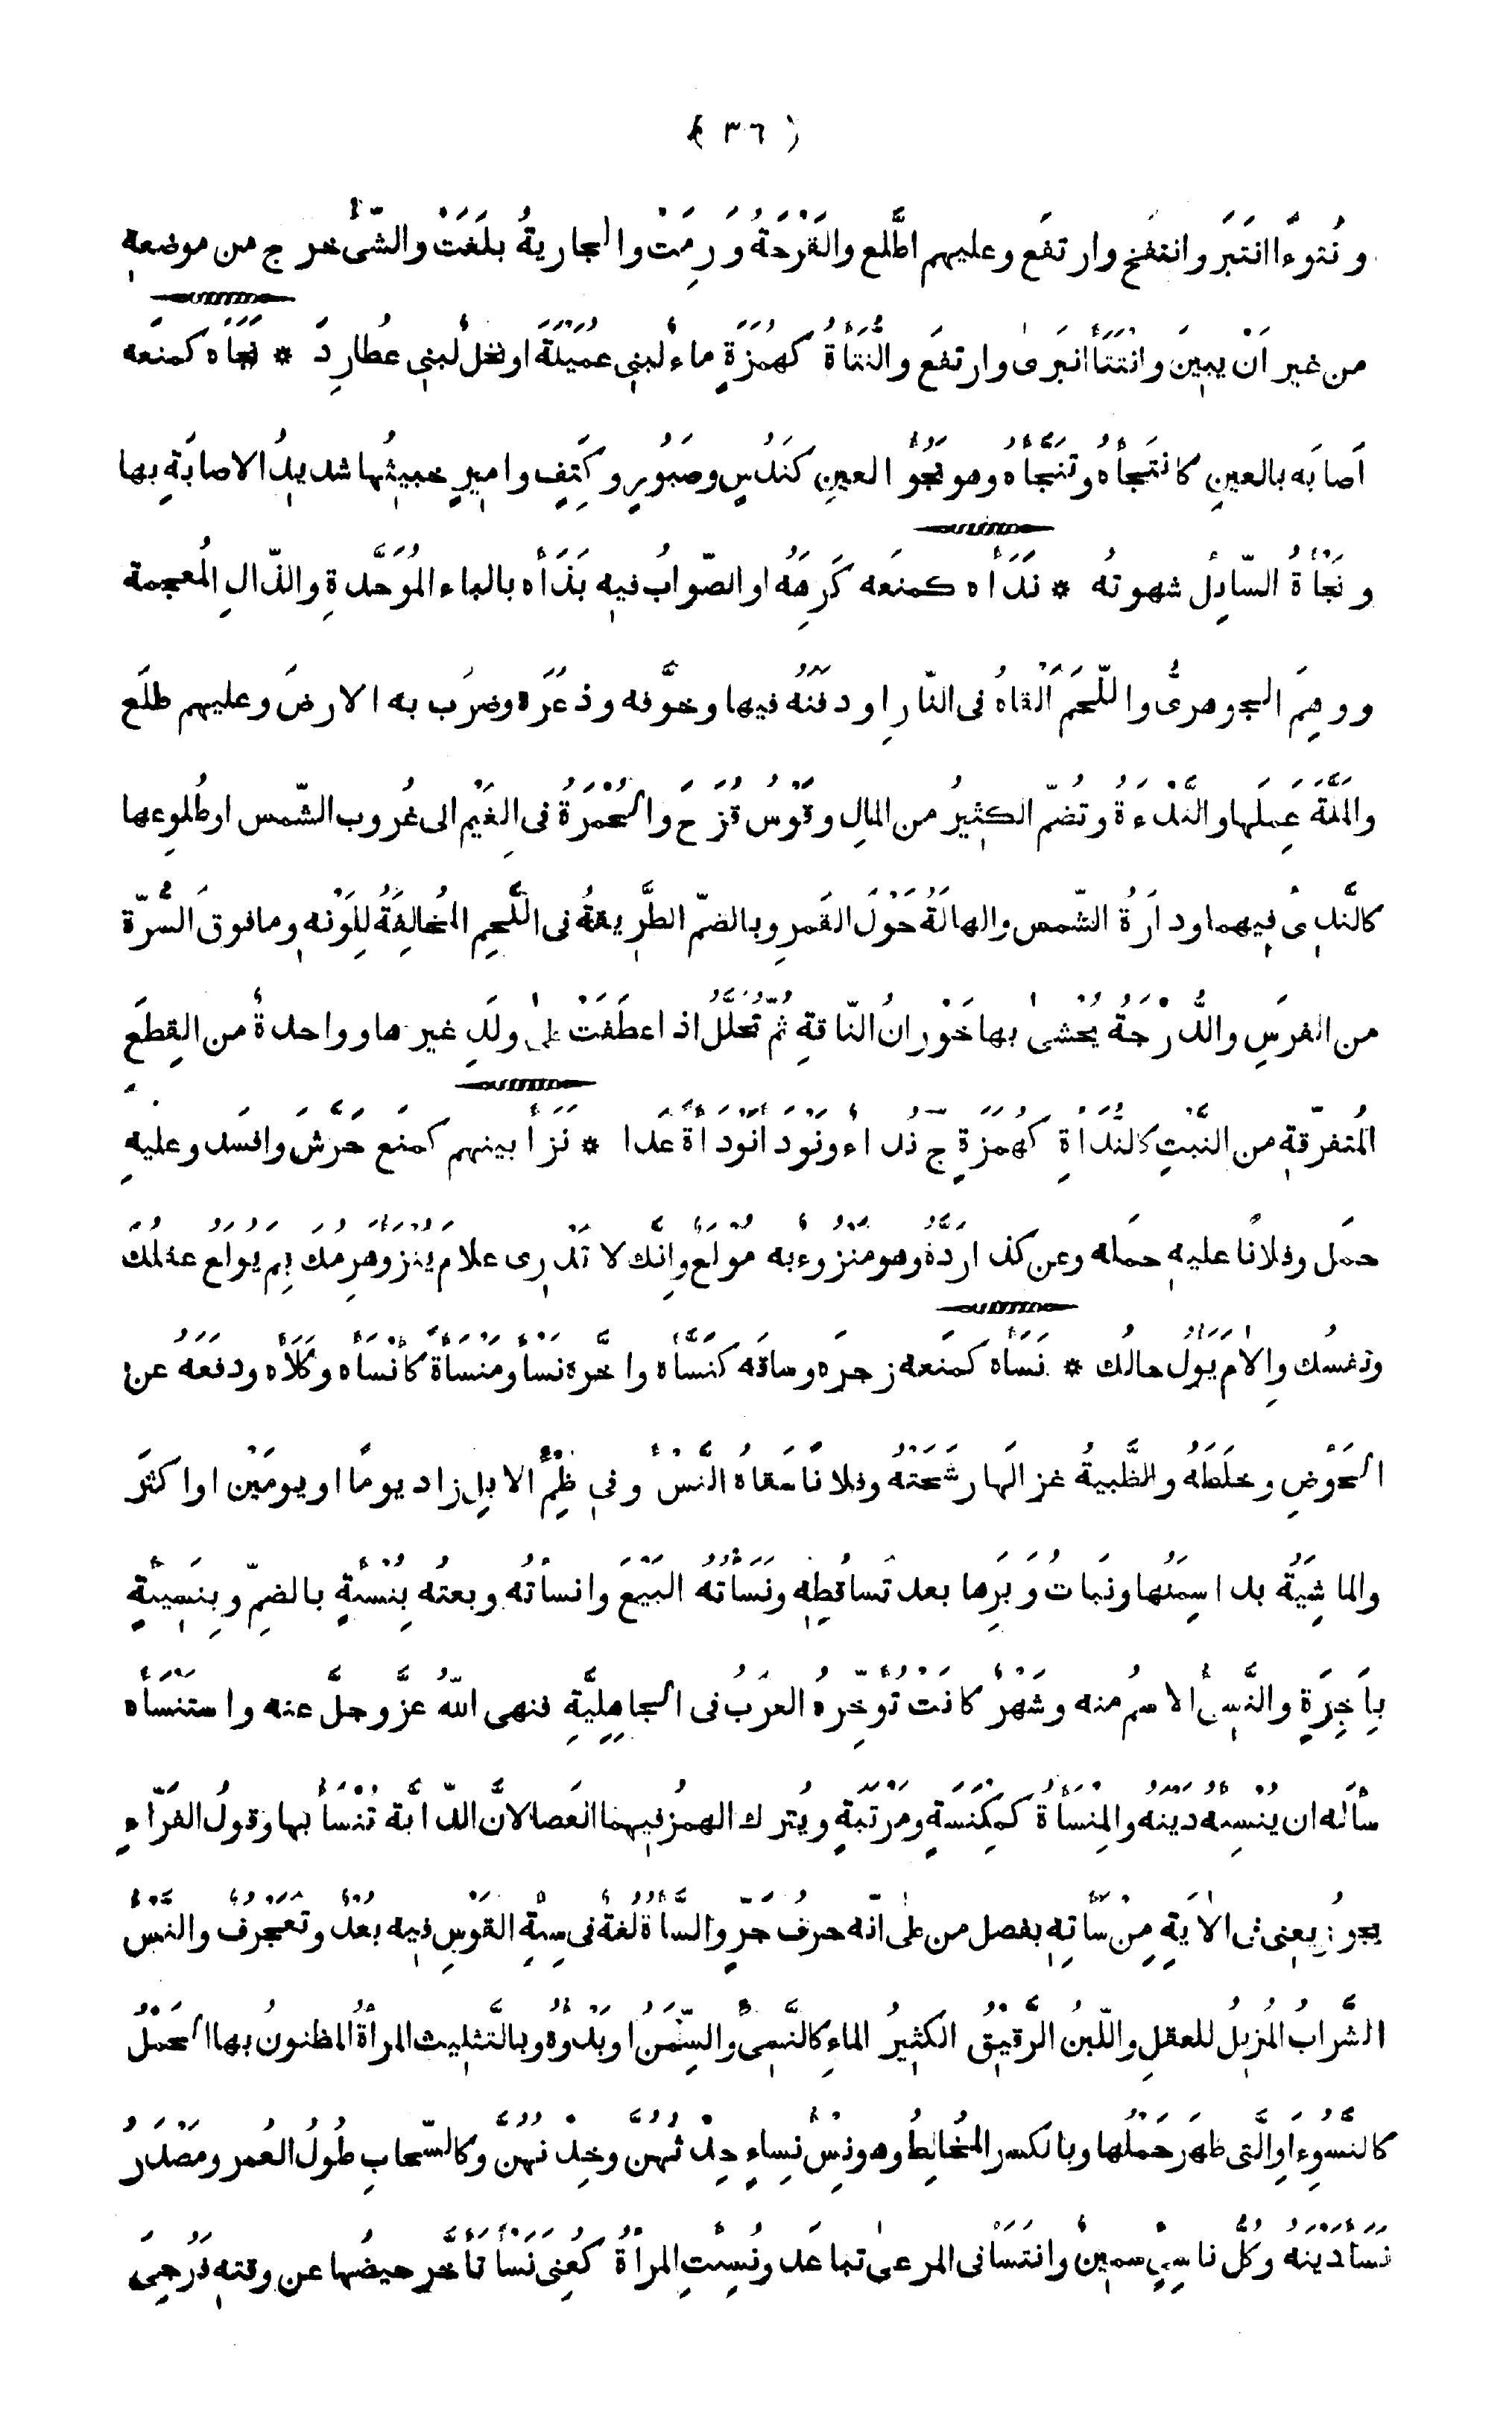 (٣٦)
ونُتوءًا انتَبَر وانتفَخ وارتفَع وعليهم اطَّلع والقَرْحَةُ وَرِمَتْ والجاريةُ بلَغَتْ والشّىُٔ خرج من موضعِهِ
من غيرِ اَنْ يبِينَ وانْتَتَأَ انبَرىٰ وارتفَع والنُّتَأَةُ كهُمَزَةٍ ماءٌ لبنِى عُمَيْلَةَ او نخلٌ لبنِى عُطارِدَ * نجَأَه كمنَعه
اَصابَه بالعينِ كانتَجأَهُ وتنَجَّأَهُ وهو نَجُؤُ العينِ كنَدُسٍ وصَبُورٍ وكَتِفٍ وامِيرٍ خبيثُها شديدُ الاصابَةِ بها
ونَجْأَةُ السّائِلِ شهوتُه * نَدَأَه كمنَعه كَرِهَهُ او الصّوابُ فيهِ بَذَأَه بالباء المُوَحَّدةِ والذّالِ المُعجمة
ووهِمَ الجوهرىُّ واللّحمَ اَلْقاهُ فى النّارِ او دفَنَهُ فيها وخوَّفه وذعَرَه وضرَب به الارضَ وعليهم طلَع
والمَلَّةَ عمِلَها والنَّدْءَةُ وتُضمّ الكثِيرُ من المالِ وقَوْسُ قُزَحَ والحُمْرَةُ فى الغَيْمِ الى غُروبِ الشّمس او طُلوعِها
كالنَّدِىءِ فِيهما ودارَةُ الشّمسِ والهالَةُ حَوْلَ القَمرِ وبالضمّ الطَّرِيقةُ فى اللَّحمِ المُخالِفَةُ لِلَوْنِهِ وما فوقَ السُّرّة
من الفرَسِ والدُّرْجَةُ يُحْشىٰ بها خَوْرانُ النّاقةِ ثُمّ تُخَلَّلُ اذا عطَفَتْ علىٰ ولَدِ غيرِها وواحدةٌ من القِطَعِ
المُتفرّقةِ من النَّبْتِ كالنُّدَأَةِ كهُمَزةٍ ج نُدَأٌ ونَوْدَأَ نَوْدَأَةً عدا * نَزَأَ بينهم كمنَع حَرَّشَ وافسَد وعليهِ
حمَل وفلانًا عليهِ حمَله وعن كذا ردَّهُ وهو منزوءٌ به مُولَعٌ وانّك لا تَدْرِى علامَ يَنْزَؤُ هرِمُكَ بِمَ يُولَعُ عقلُكَ
ونفسُك والامَ يَؤُولُ حالُك * نسَأَه كمنَعه زجَرَه وساقَه كنسَّأَه واخَّرَه نسْأً ومَنْسَأَةً كأَنْسَأَه وكَلَأَه ودفَعَهُ عن
الحَوْضِ وخلَطَهُ والظَّبيةُ غزالَها رشَّحَتْهُ وفلانًا سقاهُ النَّسْءَ وفى ظِمْءِ الابِلِ زاد يومًا او يومَيْن او اكثَرَ
والماشِيَةُ بدا سِمَنُها ونَباتُ وَبَرِها بعد تساقُطِهِ ونَسَأْتُهُ البَيْعَ وانسأْتُه وبعتُه بِنُسْئَةٍ بالضمِّ وبِنَسِيئَةٍ
بِاَخِرَةٍ والنَّسِىُٔ الاسمُ منه وشَهْرٌ كانَتْ تُؤَخِّرُهُ العرَبُ فى الجاهِلِيَّةِ فنهى اللّهُ عزَّ وجلَّ عنه واستَنْسَأَه
سأَلَه ان يُنْسِئَهُ دَيْنَهُ والمِنْسَأَةُ كمِكْنَسَةٍ ومَرْتَبَةٍ ويُترَك الهمزُ فيهما العَصا لانَّ الدّابَّةَ تُنْسَأُ بها وقولُ الفَرّاءِ
يجوزُ يعنِى فى الآيَةِ مِنْ سَأَتِهِ بفصل من علىٰ انّه حرفُ جَرٍّ والسَّأَةُ لُغةٌ فى سِيَةِ القَوْسِ فيه بُعْدٌ وتَعَجْرُفٌ والنَّسْءُ
الشَّرابُ المُزِيلُ للعقلِ واللّبنُ الرَّقيقُ الكثيرُ الماءِ كالنَّسِىءِ والسِّمَنُ او بَدْؤُهُ وبالتَّثليثِ المرأةُ المظنونُ بها الحَمْلُ
كالنَّسُوءِ اوِ الَّتى ظهَرَ حَمْلُها وبالكسرِ المُخالِطُ وهو نِسْءُ نِساءٍ حِدْثُهُنَّ وخِدْنُهُنَّ وكالسّحابِ طُولُ العُمر ومَصْدَرُ
نَسَأَ دَيْنَهُ وكُلُّ ناسِئٍ سمِينٌ وانتَسَأَ فى المرعىٰ تباعَد ونُسِئَتِ المرأةُ كعُنِىَ نَسْأً تأَخَّر حيضُها عن وقتِهِ فَرُجِىَ